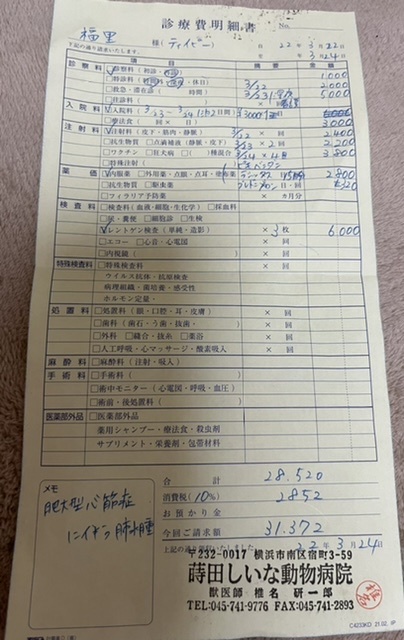 診療費明細書 No.
福里 様(ティビー)
下記の通り請求いたします。 日 22年3月22日
3月24日
診察料 摘要 金額
☑診察料(初診・再診) 1,000
□特診料( ・休日) 3/22 2,000
□救急・滞在診( 時間) 5,000
□往診料( )
入院料 ☑入院料( 3/23~3/24 1泊2日間) 3,000
□療法食( 回× 日)
注射料 ☑注射料(皮下・筋肉・静脈) 3/22 × 回 2,400
□抗生物質 □点滴補液(静脈、皮下) 3/23 × 2回 2,200
□ワクチン □狂犬病 □( )種混合 3/24 × 4回 3,800
□特殊注射( )
薬価 ☑内服薬 □外用薬・点眼、点耳・塗布薬 2,800
□抗生物質 □駆虫薬 日・回
□フィラリア予防薬 × ヵ月分
検査料 □検査料(血液・細胞・生化学) □採血料
□尿・糞便 □細胞診 □生検
☑レントゲン検査(単純・造影) × 3枚 6,000
□エコー □心音・心電図 × 回
□内視鏡( ) × 回
特殊検査料 □特殊検査料 × 回
ウイルス抗体・抗原検査
病理組織・菌培養・感受性
ホルモン定量・
処置料 □処置料(眼・口腔・耳・皮膚) × 回
□歯科(歯石・う歯・抜歯・ ) × 回
□外科 □縫合・抜糸 □薬浴 × 回
□人工呼吸・心マッサージ・酸素吸入 × 回
麻酔料 □麻酔料(注射・吸入)
手術料 □手術料( )
□術中モニター(心電図・呼吸・血圧)
□術前・後処置料( )
医薬部外品 □医薬部外品
薬用シャンプー・療法食・殺虫剤
サプリメント・栄養剤・包帯材料
メモ
肥大型心筋症
にイギン肺水腫
合計 28,520
消費税(10%) 2852
お預かり金
今回ご請求額 31,372
上記の通り 22年3月24日
〒232-0017 横浜市南区宿町3-59
蒔田しいな動物病院
獣医師 椎名 研一郎
TEL:045-741-9776 FAX:045-741-2893
C4233KD 21.02. IP